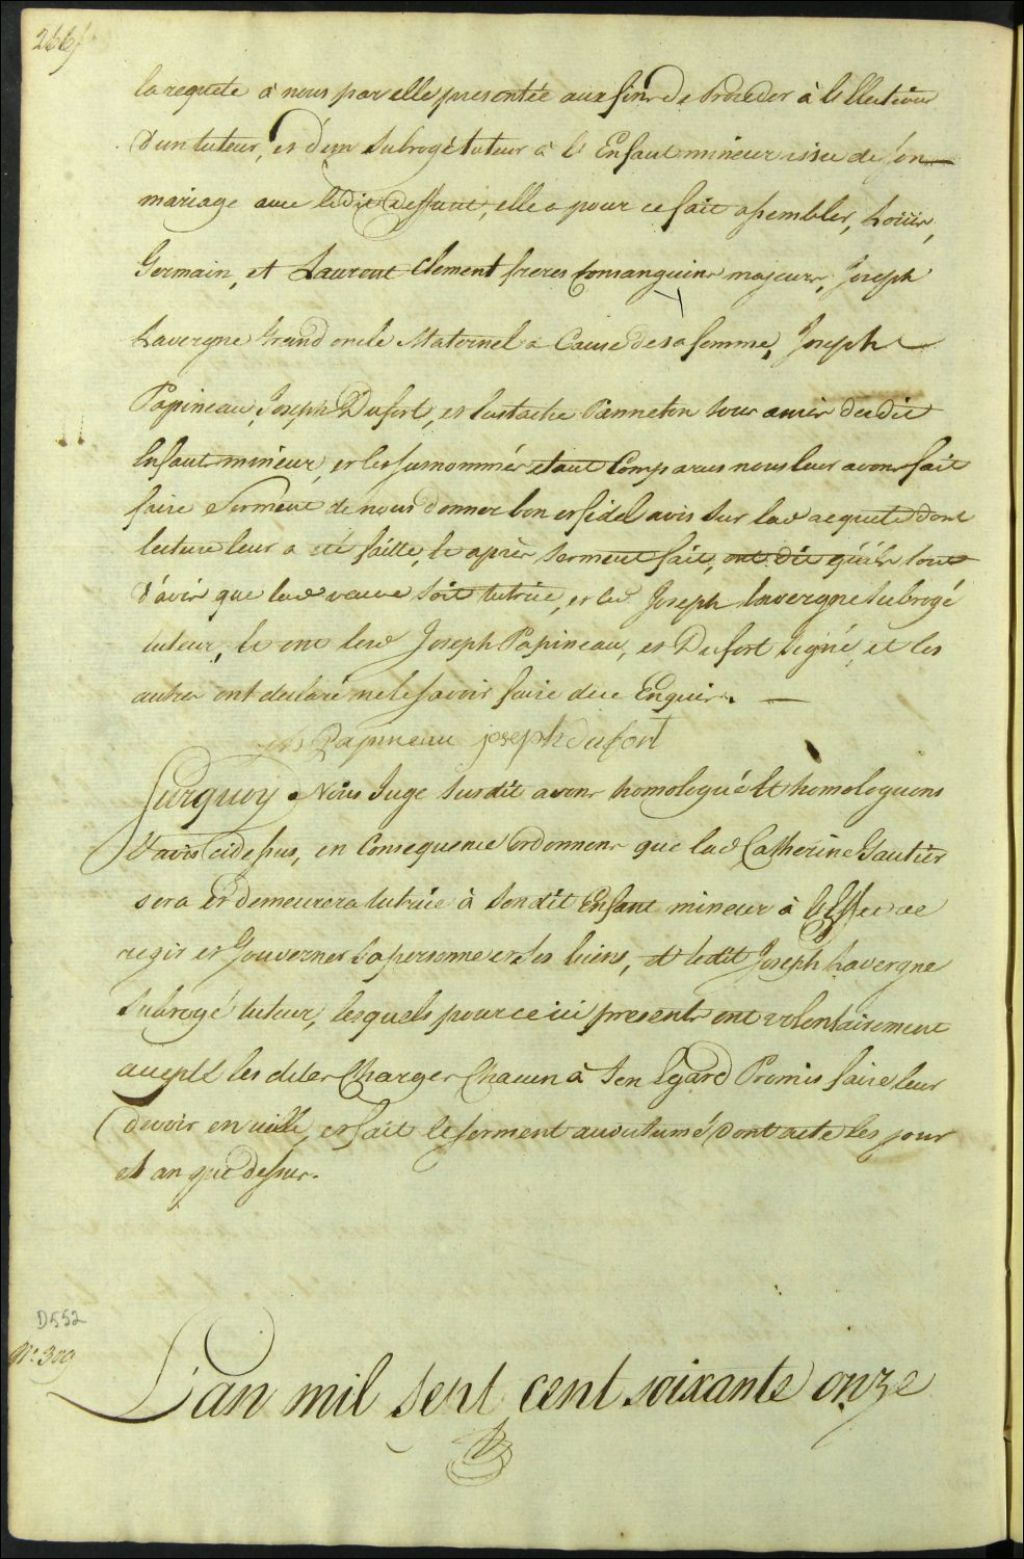 266
la requete à nous par elle presentée aux fins de Proceder à l'Ellection
d'un tuteur, et d'un Subrogé tuteur à l' Enfant mineur issu de son
mariage avec ledit deffunt, elle a pour ce fait assembler, Loüis,
Germain, et Laurent Clement freres Consanguins majeurs, Joseph
Lavergne Grand oncle Maternel a Cause de sa femme, Joseph
Papineau, Joseph Dufort, et Eustache Panneton tous amis du dit
Enfant mineur, et les susnommés etant Comparus nous leur avons fait
faire Serment de nous donner bon et fidel avis sur lad requete dont
lecture leur a été faitte, et après serment fait, ont dit qu'ils sont
d'avis que lad veuve soit tutrice, et led Joseph Lavergne Subrogé
tuteur, et ont lesd Joseph Papineau, et Dufort Signé, et les
autres ont declaré ne le savoir faire de ce Enquis. —
Papineau joseph dufort
Surquoy Nous Juge susdit avons homologué et homologuons
l'avis cidessus, en Consequence ordonnons que lad Catherine Gautier
sera et demeurera tutrice à sondit Enfant mineur à l'Effet de
regir et Gouverner sa personne et ses biens, et ledit Joseph Lavergne
Subrogé tuteur, lesquels pour ce ici presents ont volontairement
accepté les dites Charges Chacun à Son Egard Promis faire leur
devoir en icelle, et fait le serment accoutumé Dont acte les jour
et an que dessus.
D552
N.º 309
L'an mil sept cent soixante onze